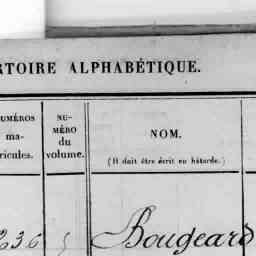 RTOIRE ALPHABÉTIQUE.
NUMÉROS
ma-
ricules.
NU-
MÉRO
du
volume.
NOM.
(Il doit être écrit en bâtarde.)
236
5
Bougeard